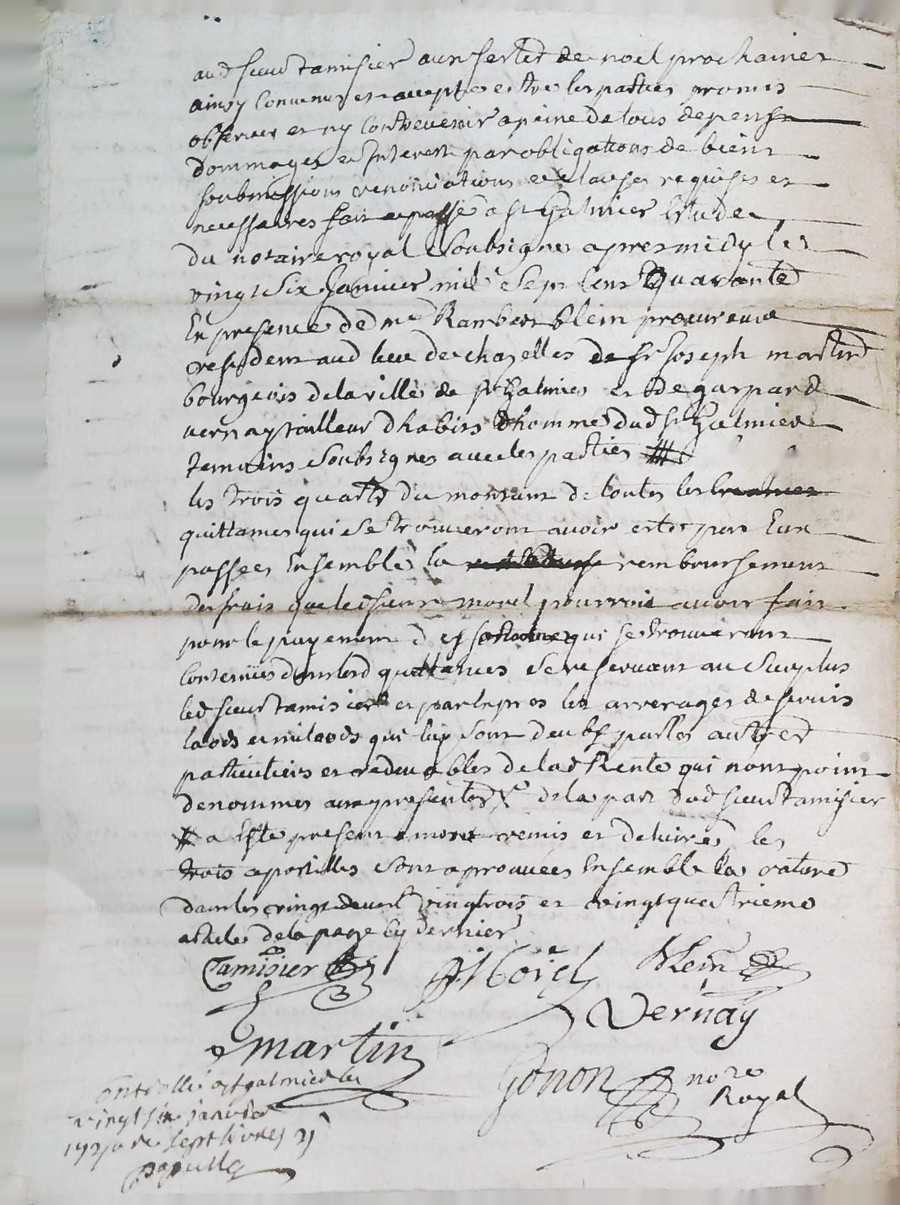 aud sieur tamisier aux festes de noel prochaines
ainsy convenu et accepté entre les parties promis
observer et ny contrevenir a peine de tous depens
dommages et interest par obligations de biens
soubmissions renonciations et clauses requises et
necessaires fait et passé a st Galmier Etude
du notaire royal soubsigné apres midy le
vingt six Janvier mil sept cent quarante
En presence de me Rambert blein procureur
resident aud lieu de chazelles de sr Joseph martin
bourgeois de la ville de st Galmier et de gaspard
vernay tailleur dhabits dhomme dud st Galmier
temoins soubsignés avec les parties
les trois quarts du montant de toutes les
quittances qui se trouveront avoir esté par Eux
passees Ensemble le remboursement
des frais que le dsieur morel pourroit avoir fait
pour le payement des qui se trouveront
contenües dans lesd quittances se reservant au surplus
led sieur tamisier les arrerages de servis
laods et milaods qui luy sont deubs par les autres
particuliers et redevables de lad Rente qui nont point
denommés aux presentes de la part dud sieur tamisier
a Esté presentemont remis et delivré les
trois apostilles sont aprouvées Ensemble la rature
dans les vingt deux vingt trois et vingt quatrieme
de la page cy dernier
Tamisier Morel Blein
Vernay
martin
Gonon nore
Royal
Controllé a st galmier le
vingt six janvier
sept livres